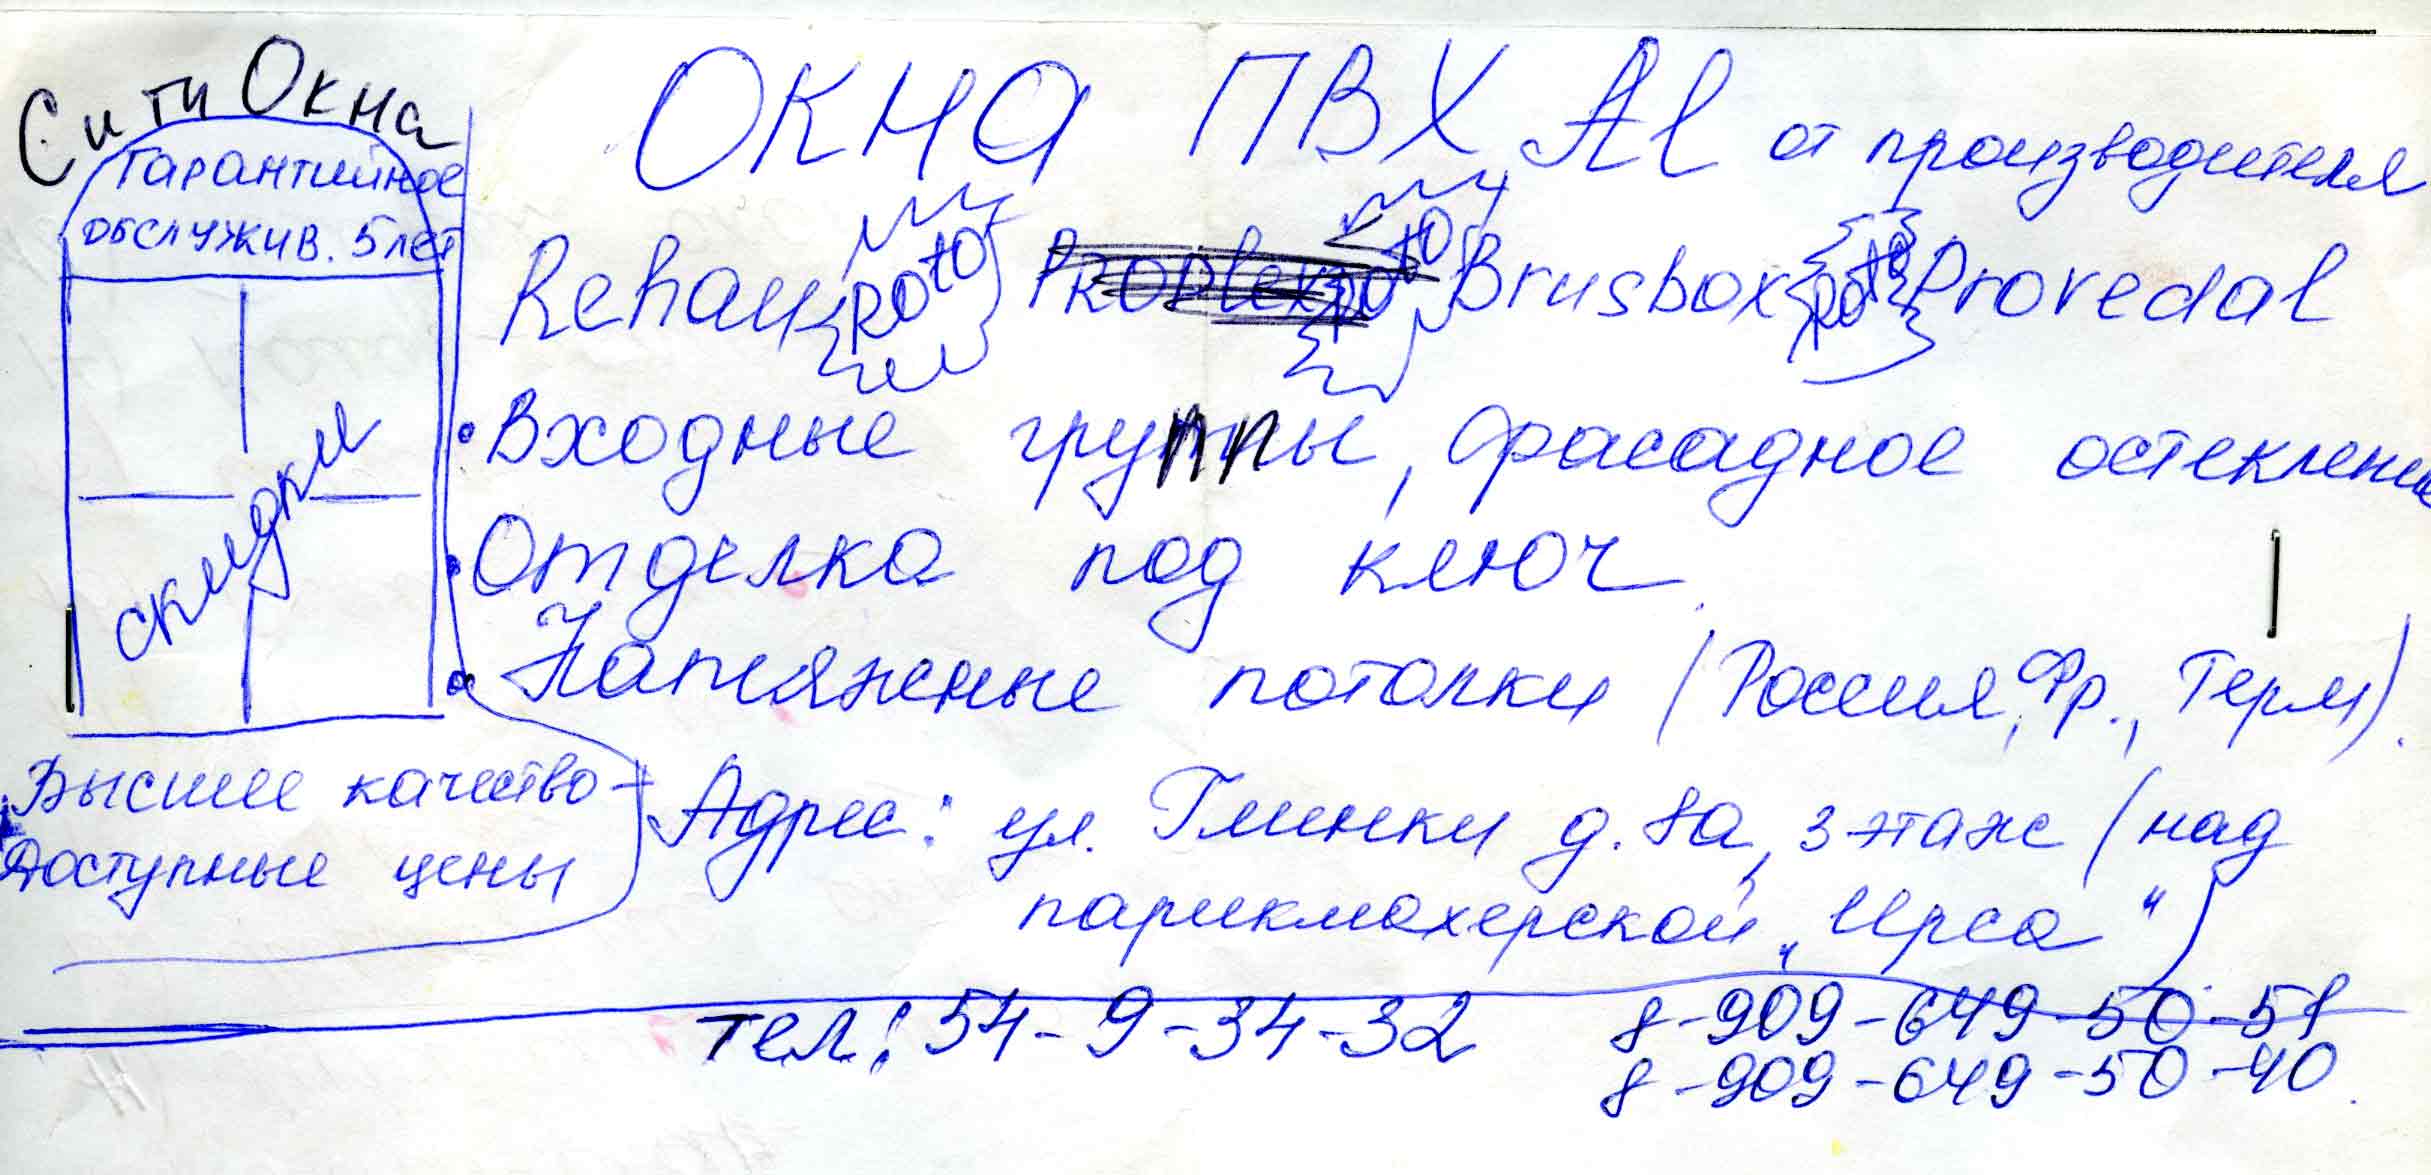 Сити Окна
Гарантийное
обслужив. 5 лет
скидки
Высшее качество -
Доступные цены
ОКНА ПВХ Al от производителя
Rehau Roto Proplex Roto Brusbox Roto Provedal
• Входные группы, фасадное остекление
• Отделка под ключ.
• Натяжные потолки (Россия, Фр., Герм).
Адрес: ул. Глинки д. 8а, 3 этаж (над
парикмахерской „Ирса")
тел: 54-9-34-32 8-909-649-50-51
8-909-649-50-40